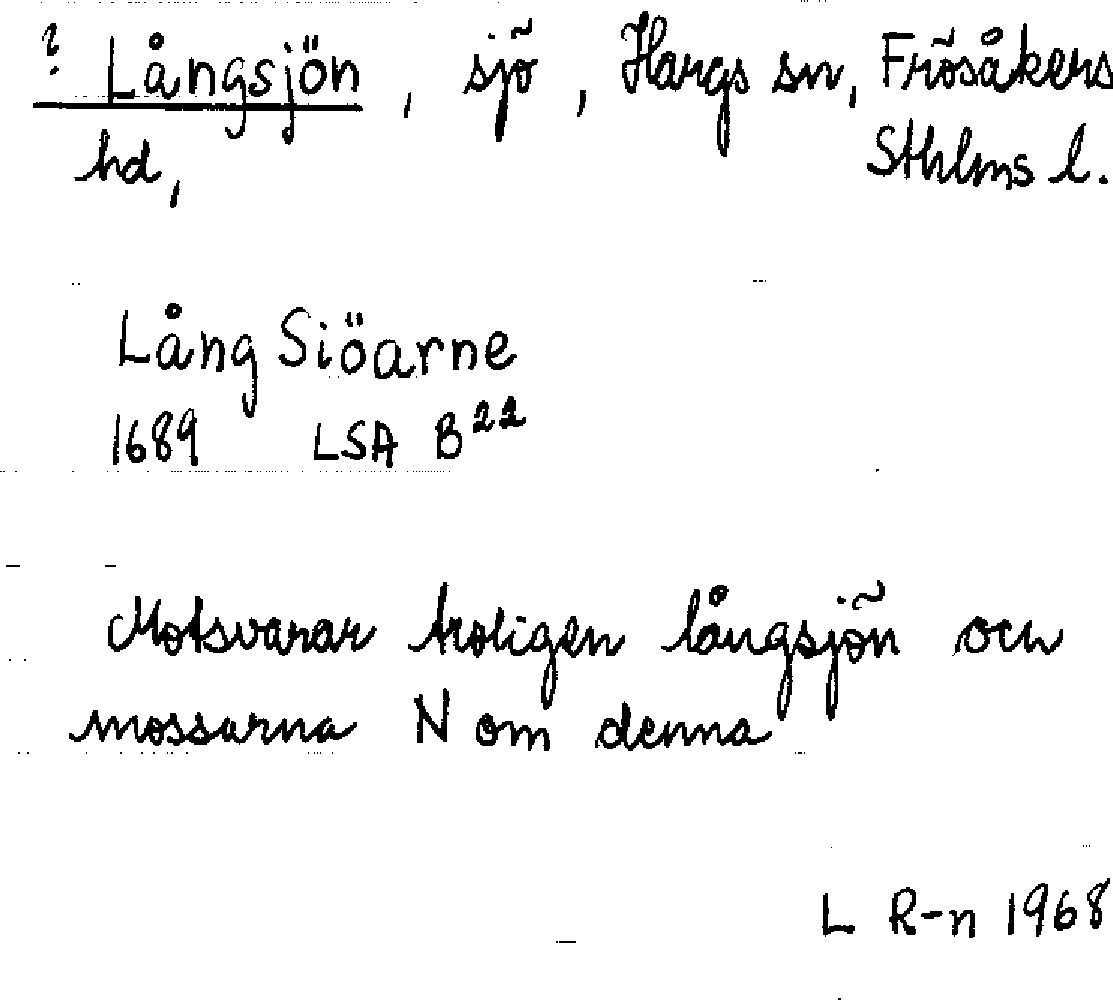 ? Långsjön, sjö, Hargs sn, Frösåkers
hd, Sthlms l.
Lång Siöarne
1689 LSA B²²
Motsvarar troligen långsjön och
mossarna N om denna
L R-n 1968